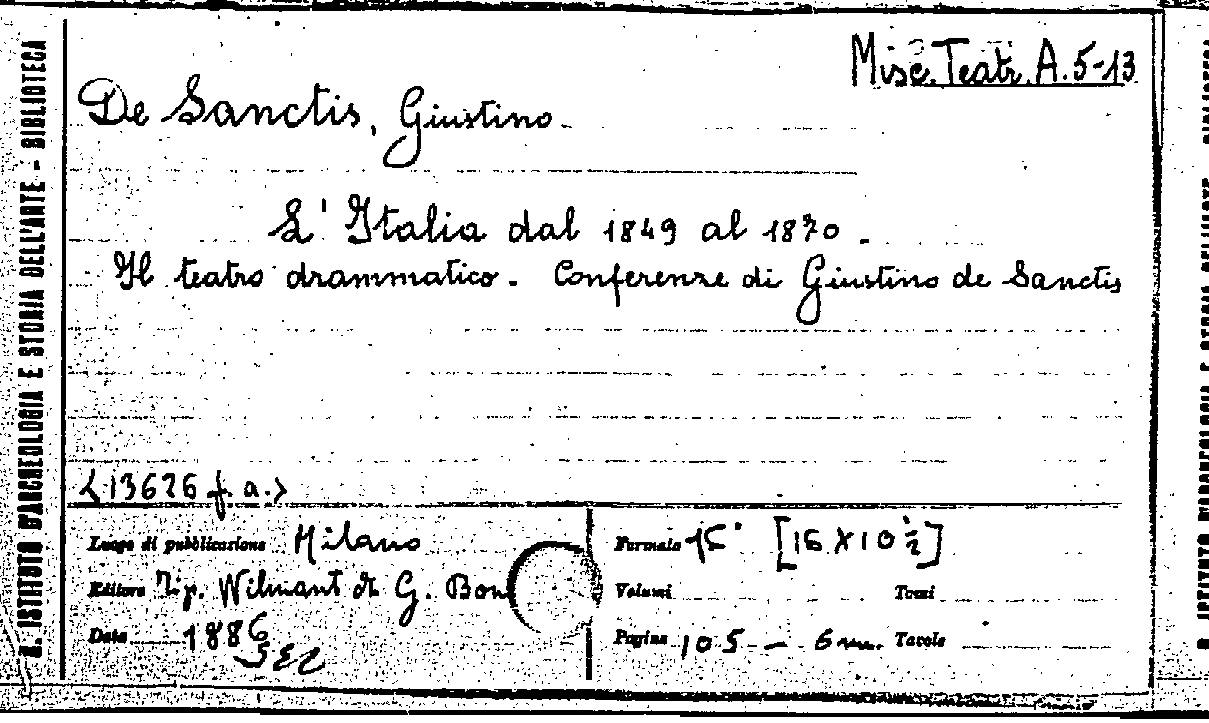 R. ISTITUTO D'ARCHEOLOGIA E STORIA DELL'ARTE - BIBLIOTECA
Misc. Teatr. A. 5-13
De Sanctis, Giustino.
L' Italia dal 1849 al 1870.
Il teatro drammatico. Conferenze di Giustino de Sanctis
<13626 f. a.>
Luogo di pubblicazione Milano
Editore Tip. Wilmant di G. Bon
Data 1886
Formato 15° [16 X 10 ½]
Volumi Tomi
Pagine 105 - 6 nn. Tavole